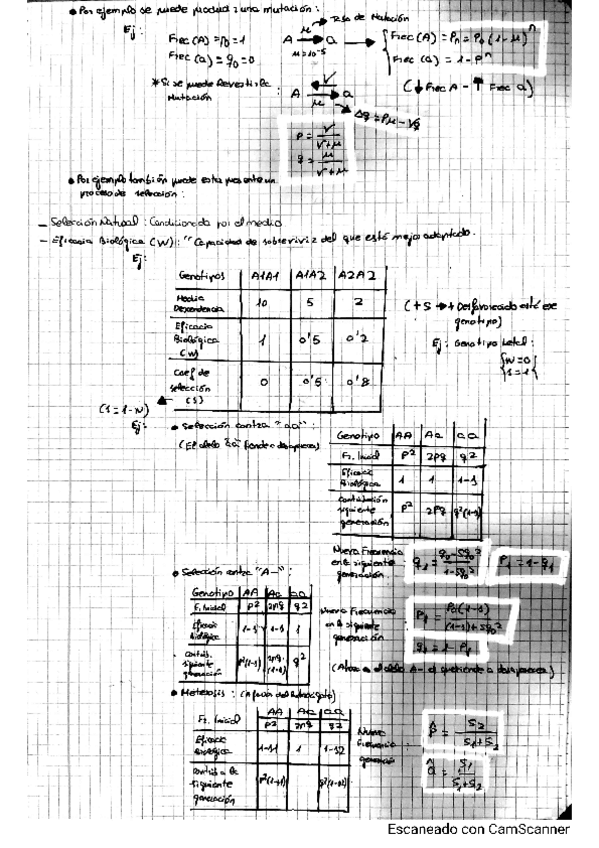 • Por ejemplo se puede producir una mutación :
Ej : Frec (A) = p0 = 1
Frec (a) = q0 = 0
A → a
μ
μ = 10⁻⁵
Tasa de Mutación
Frec (A) = Pn = P0 (1 - μ)ⁿ
Frec (a) = 1 - Pⁿ
(↓ Frec A - ↑ Frec a)
* Si se puede Revestir la Mutación : A ⇄ a
Δq = Pμ - Vq
P = V / V+μ
q = μ / V+μ
• Por ejemplo también puede estar presente un
proceso de selección :
— Selección Natural : Condicionada por el medio
— Eficacia Biológica (W) : "Capacidad de sobrevivir del que está mejor adaptado.
Ej :
Genotipos A1A1 A1A2 A2A2
Media Descendencia 10 5 2
Eficacia Biológica (W) 1 0'5 0'2
Coef de selección (S) 0 0'5 0'8
(+S → + Desfavorecido está ese
genotipo)
Ej : Genotipo Letal : W=0
S=1
(S = 1-W)
Ej : • Selección contra "aa" :
(El alelo "a" tiende a desaparecer)
Genotipo AA Aa aa
Fr. Inicial P² 2pq q²
Eficacia Biológica 1 1 1-S
Contribución siguiente generación P² 2pq q²(1-S)
Nueva Frecuencia en la siguiente generación : q1 = q0 - Sq0² / 1 - Sq0²
P1 = 1 - q1
• Selección contra "A-" :
Genotipo AA Aa aa
F. Inicial P² 2pq q²
Eficacia Biológica 1-S 1-S 1
Contrib. siguiente generación P²(1-S) 2pq(1-S) q²
Nueva Frecuencia en la siguiente generación : P1 = P0(1-S) / (1-S)+Sq0²
q1 = 1 - P1
(Ahora el alelo A- el que tiende a desaparecer)
• Heterosis : (A favor del Heterocigoto)
AA Aa aa
Fr. Inicial P² 2pq q²
Eficacia Biológica 1-S1 1 1-S2
siguiente generación
Nueva Frecuencia generación
P̂ = S2 / S1+S2
q̂ = S1 / S1+S2
Escaneado con CamScanner